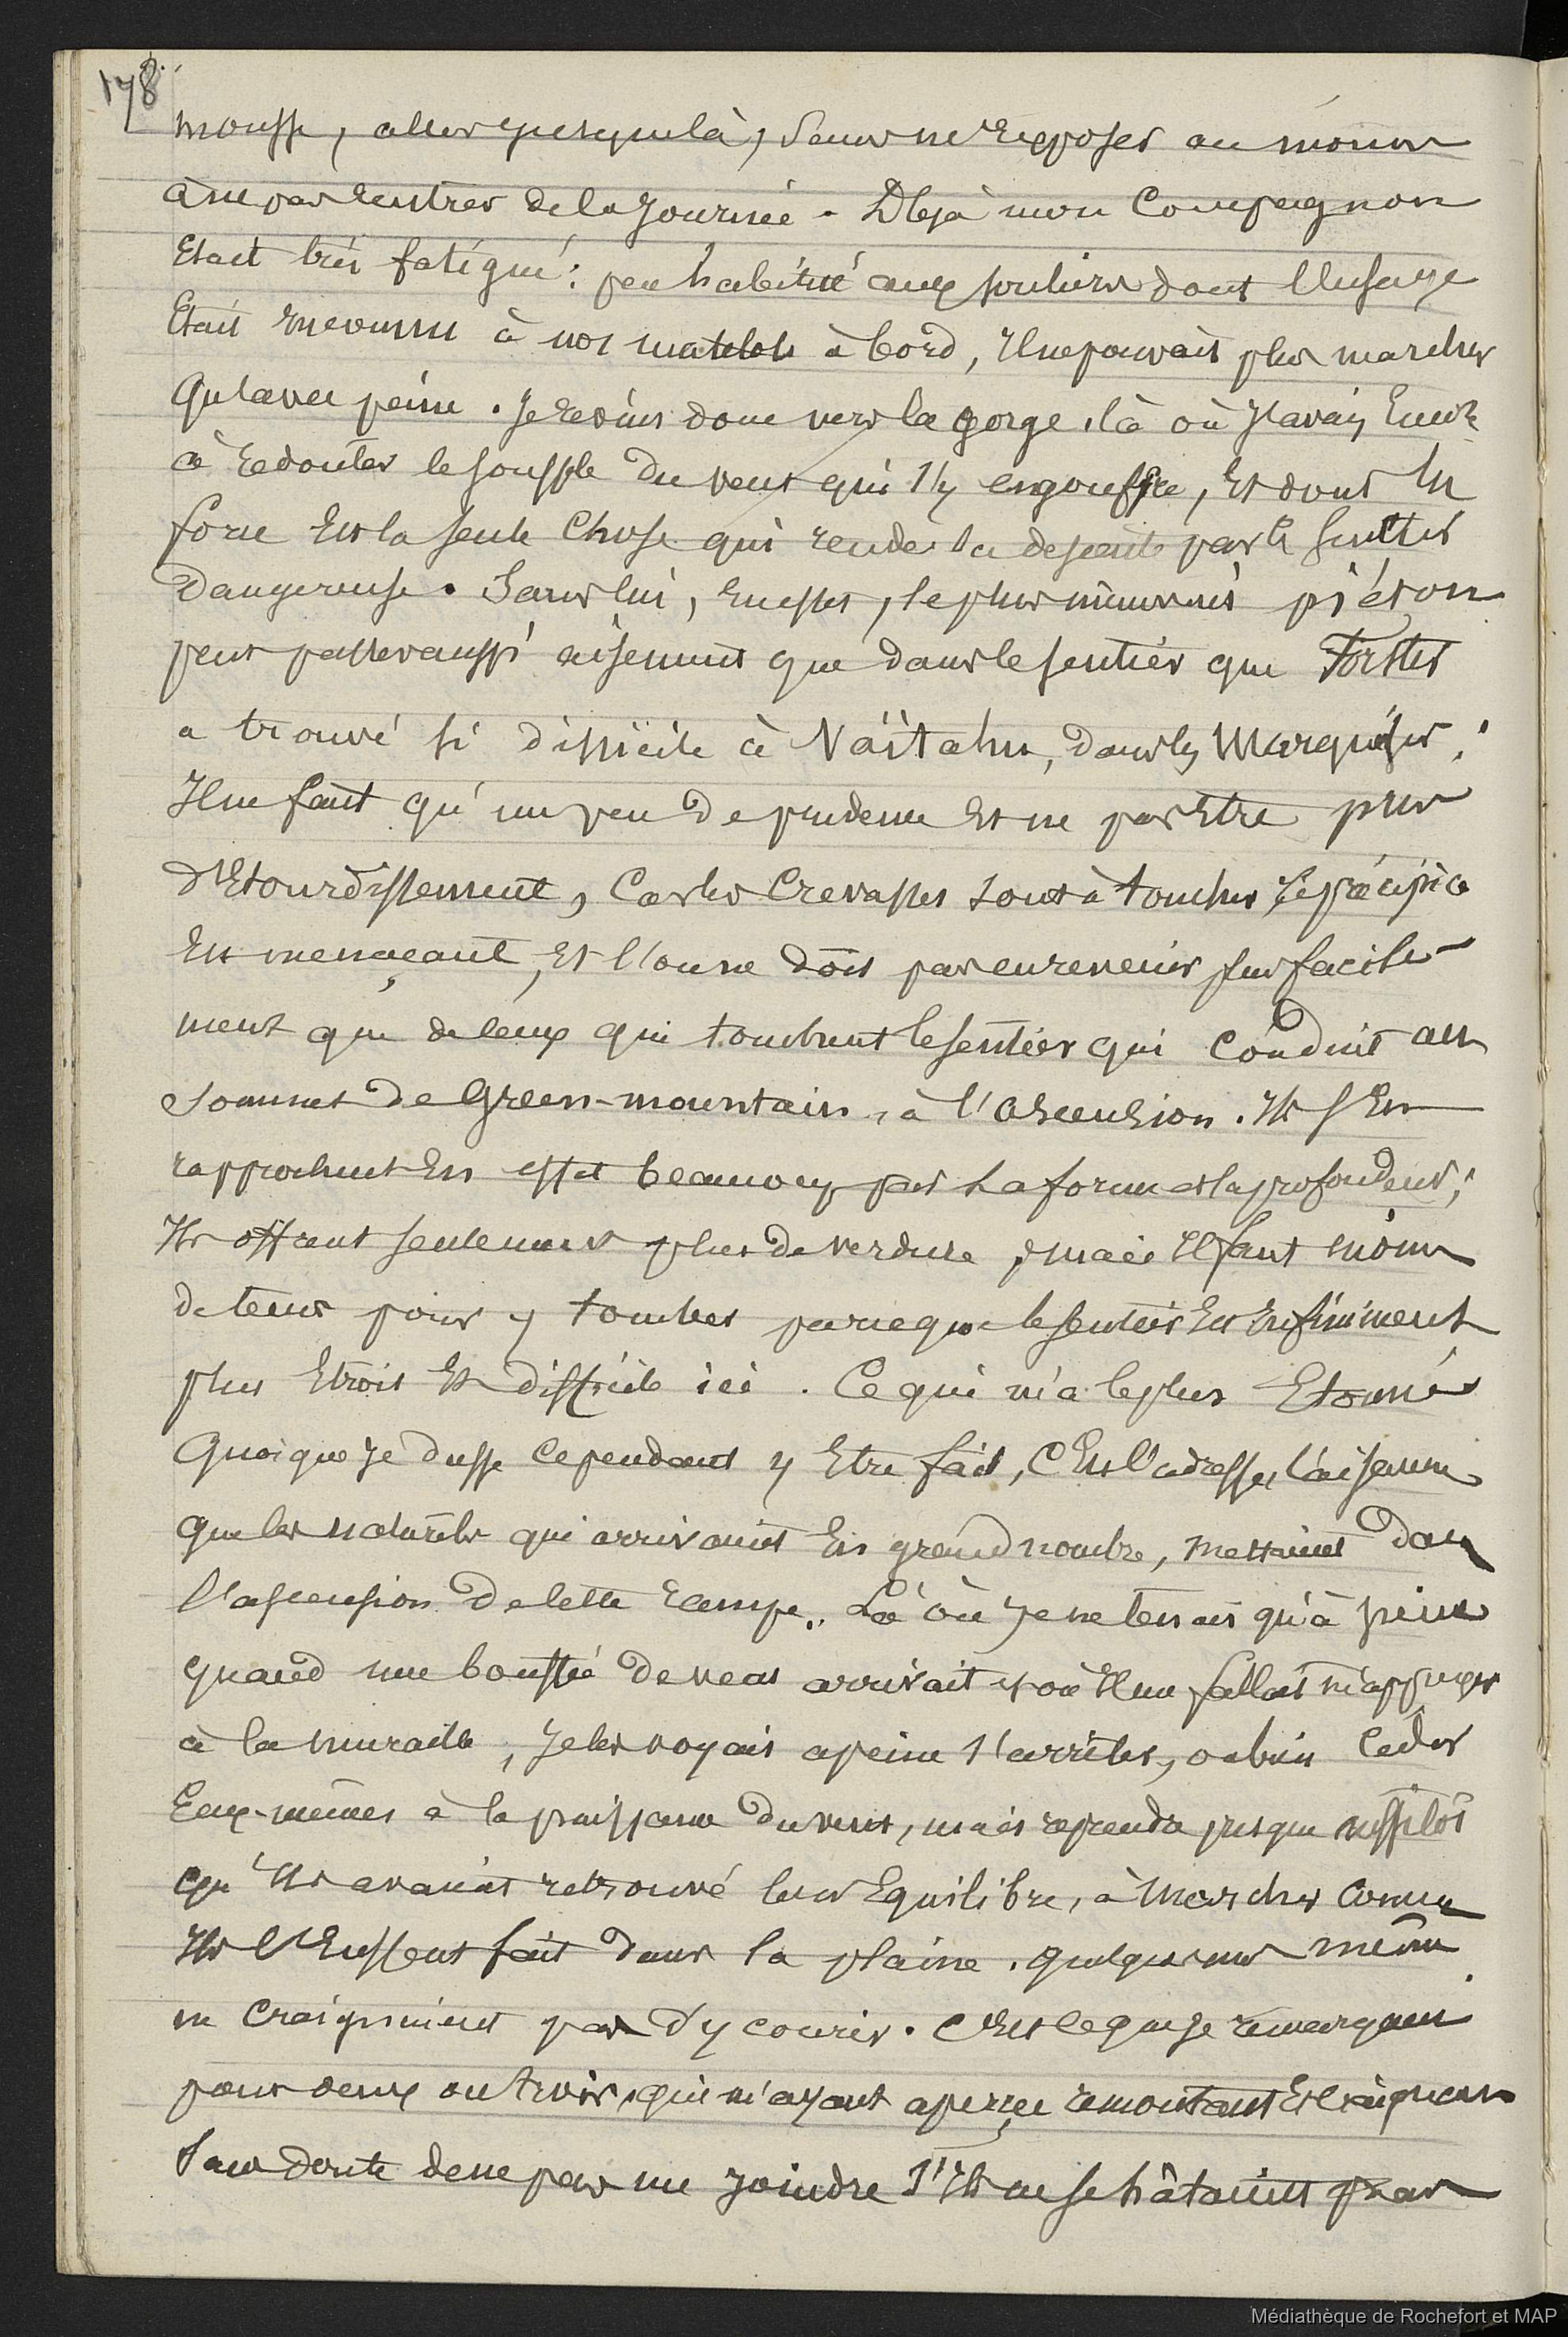 178
mousse, aller jusque là, sans ne s'exposer au moins
à ne pas rentrer de la journée. Déjà mon compagnon
Etait très fatigué: peu habitué aux souliers dont l'usage
Etait inconnu à nos matelots à bord, Il ne pouvait plus marcher
qu'avec peine. Je revins donc vers la gorge, là où J'avais Encore
à redouter le souffle du vent qui s'y engouffre, Et dont la
force Est la seule chose qui rende la descente par le sentier
dangereuse. Sans lui, En effet, le plus mauvais piéton
peut passer aussi aisément que dans le sentier que Forster
a trouvé si difficile à Vaïtahu, dans les Marquises;
Il ne faut qu'un peu de prudence Et ne pas Etre pris
d'Etourdissement, Car les Crevasses sont à toucher, le précipice
Est menaçant, Et l'on ne doit pas en revenir plus facile-
ment que de ceux qui bordent le sentier qui conduit au
sommet de Green-mountain, à l'Ascension. Ils s'En
rapprochent En effet beaucoup par la forme et la profondeur;
Ils offrent seulement plus de verdure, mais Il faut moins
de tems pour y tomber parce que le sentier Est Infiniment
plus Etroit Et difficile ici. Ce qui m'a le plus Etonné
Quoique Je dusse cependant y Etre fait, C'Est l'adresse, l'aisance
que les naturels qui arrivaient En grand nombre, mettaient dans
l'ascension de cette rampe. Là où Je ne tenais qu'à peine
quand une bouffée de vent arrivait et où Il me fallait m'appuyer
à la muraille, Je les voyais à peine s'arrêter, ou bien céder
Eux-mêmes à la puissance du vent, mais reprendre presque aussitôt
qu'Ils avaient retrouvé leur Equilibre, à marcher comme
Ils l'Eussent fait dans la plaine. quelques uns même
ne craignaient pas d'y courir. C'Est ce que Je remarquai
pour deux ou trois, qui m'ayant aperçu remontant Et craignant
sans doute de ne pas me joindre s'Ils ne se hâtaient pas
Médiathèque de Rochefort et MAP